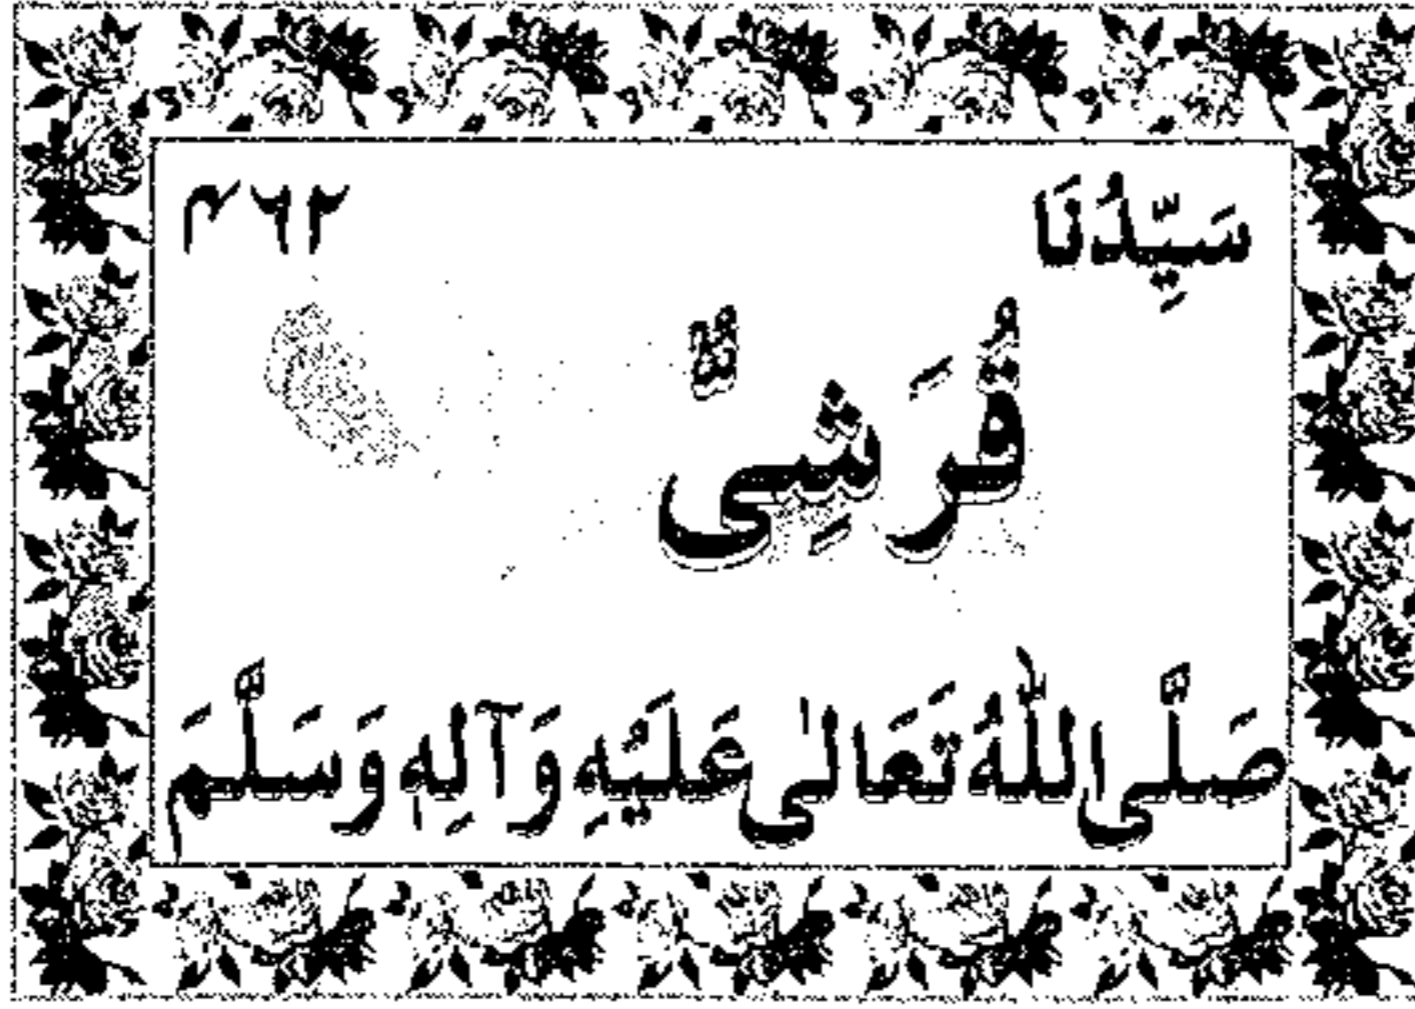 سَيِّدُنَا ۴۶۲
قُرَشِىٌّ
صَلَّى اللّٰهُ تَعَالٰى عَلَيْهِ وَآلِهٖ وَسَلَّمَ